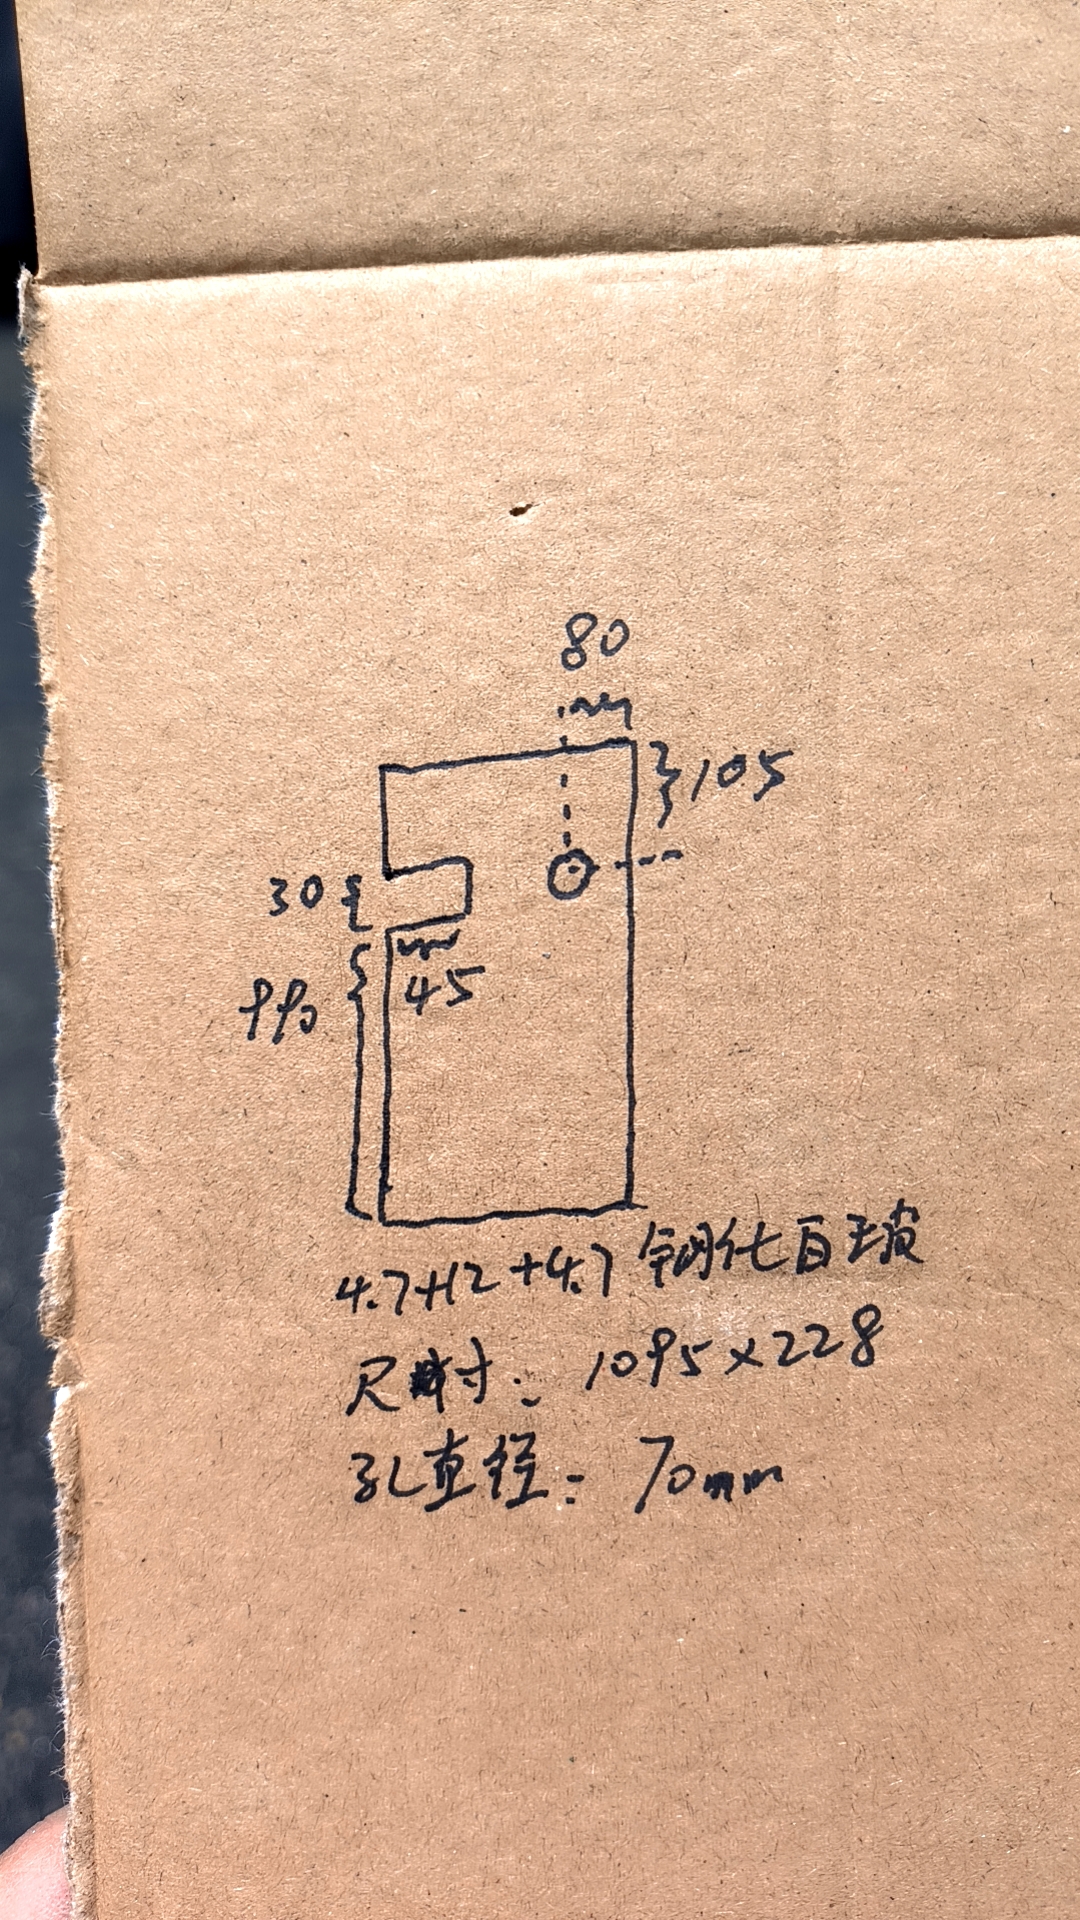 80
105
30
990
45
4.7+12+4.7 钢化百玉玻
尺寸: 1095×228
孔直径: 70mm